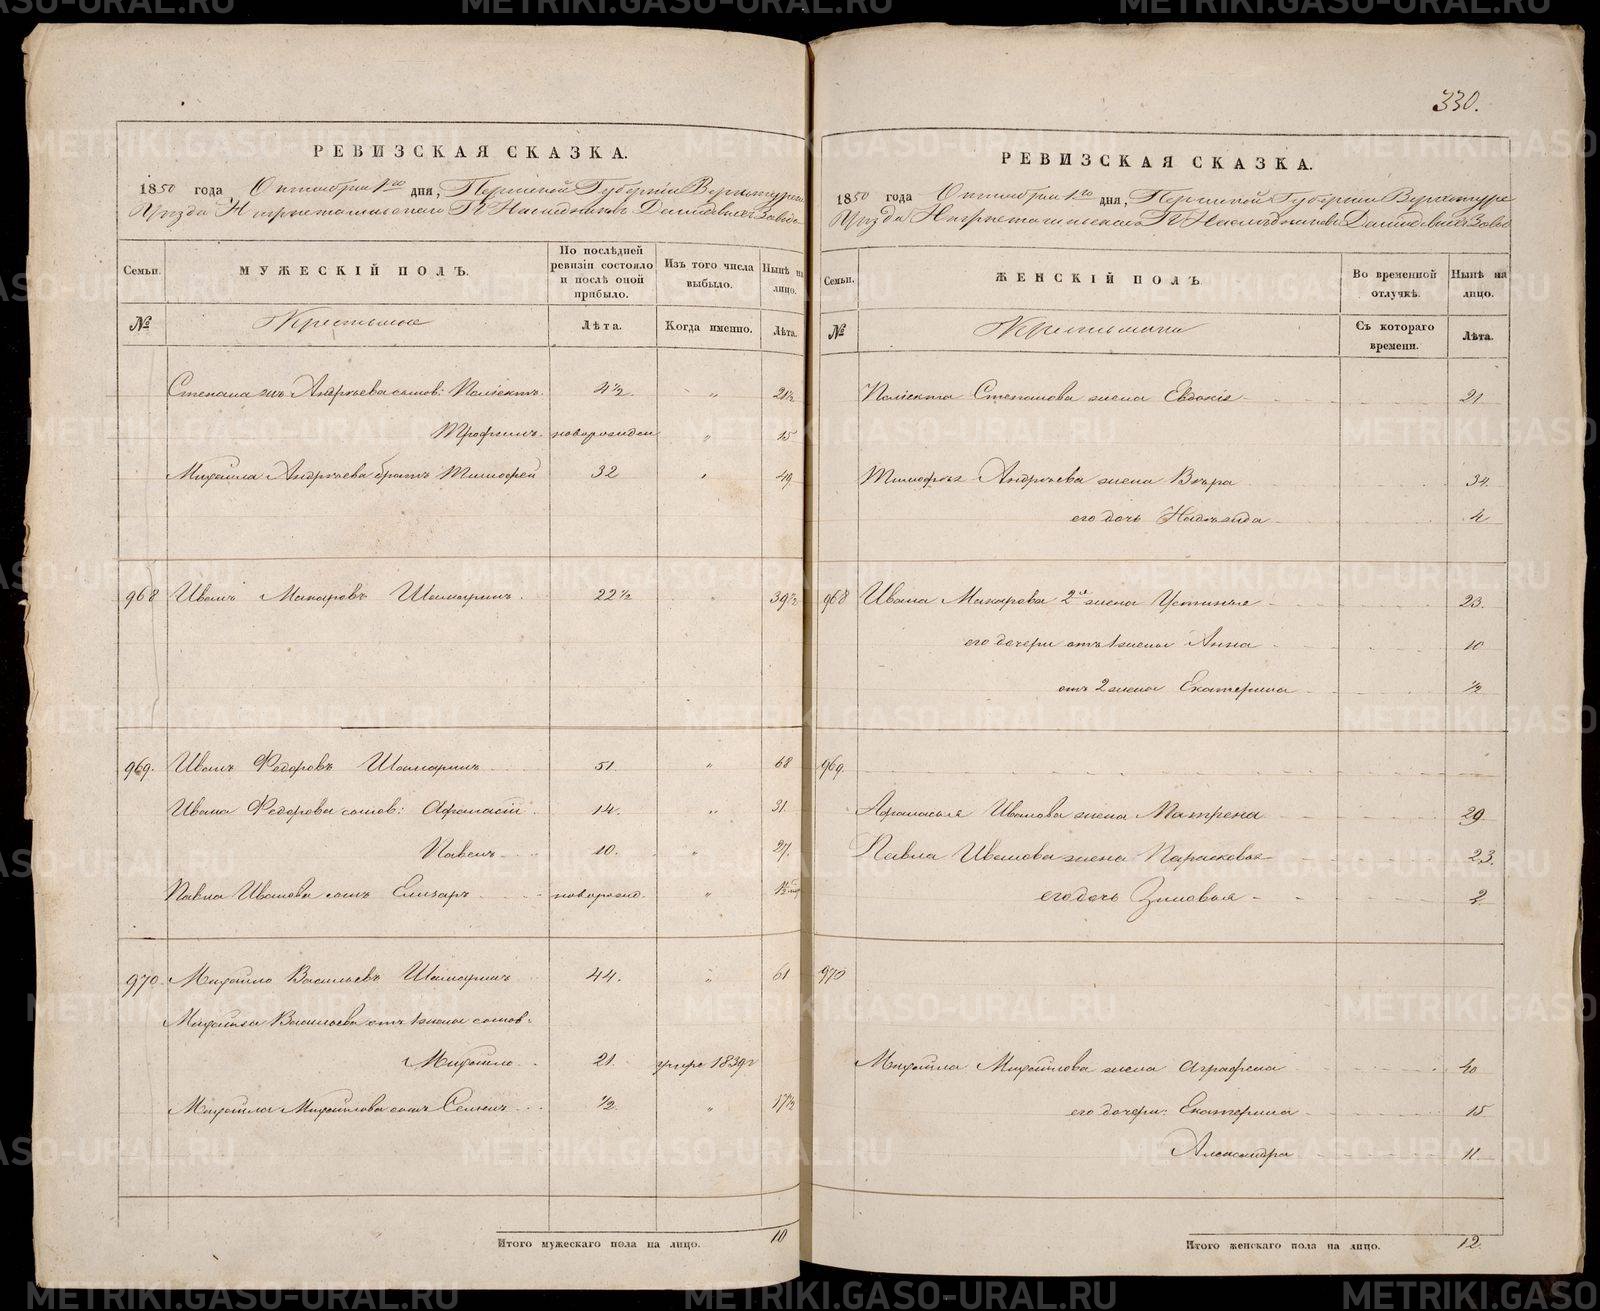 330.
РЕВИЗСКАЯ СКАЗКА.
1850 года Октября 1го дня, Пермской Губернии Верхотурскаго
Уѣзда Нижнетагильскаго Гг. Наслѣдниковъ Демидовыхъ Завода
Семьи. МУЖЕСКІЙ ПОЛЪ. По послѣдней ревизіи состояло и послѣ оной прибыло. Изъ того числа выбыло. Нынѣ на лицо.
№ Крестьяне Лѣта. Когда именно. Лѣта.
Степана Андрѣева сынов: Поліектъ 4½ " 21½
Трофимъ новорожден " 15
Михайла Андрѣева братъ Тимофей 32 " 49
968 Иванъ Макаровъ Шамаринъ 22½ " 39½
969. Иванъ Федоровъ Шамаринъ 51 " 68
Ивана Федорова сынов: Афанасій 14. " 31.
Павелъ 10. " 27.
Павла Иванова сынъ Елизаръ новорожд. "
970 Михайло Васильевъ Шамаринъ 44. " 61
Михайла Васильева отъ 1 жены сынов:
Михайло 21. умре 1839г
Михайла Михайлова сынъ Семенъ ½. " 17½
Итого мужескаго пола на лицо. 10
РЕВИЗСКАЯ СКАЗКА.
1850 года Октября 1го дня, Пермской Губерніи Верхотурс
Уѣзда Нижнетагильскаго Гг. Наслѣдниковъ Демидовыхъ Заво
Семьи. ЖЕНСКІЙ ПОЛЪ. Во временной отлучкѣ. Нынѣ на лицо.
№ Крестьянки Съ котораго времени. Лѣта.
Поліекта Степанова жена Евдокія 21
Тимофея Андрѣева жена Вѣра 34.
его дочь Надежда 4
968 Ивана Макарова 2я жена Устинья 23.
его дочери отъ 1 жены Анна 10
отъ 2 жены Екатерина ½
969.
Афанасья Иванова жена Матрена 29.
Павла Иванова жена Парасковья 23.
его дочь Зиновья 2
970
Михайла Михайлова жена Аграфена 40
его дочери: Екатерина 15
Александра 11.
Итого женскаго пола на лицо. 12.
METRIKI.GASO-URAL.RU